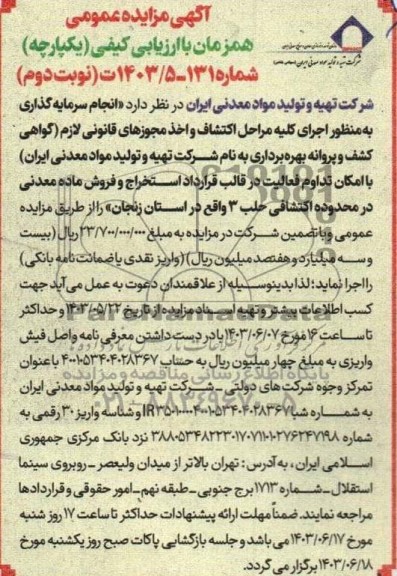 آگهی مزایده عمومی
همزمان با ارزیابی کیفی (یکپارچه)
شماره ۱۳۱-۱۴۰۳/۵ت (نوبت دوم)
شرکت تهیه و تولید مواد معدنی ایران در نظر دارد «انجام سرمایه گذاری
به منظور اجرای کلیه مراحل اکتشاف و اخذ مجوزهای قانونی لازم (گواهی
کشف و پروانه بهره برداری به نام شرکت تهیه و تولید مواد معدنی ایران)
با امکان تداوم فعالیت در قالب قرارداد استخراج و فروش ماده معدنی
در محدوده اکتشافی حلب ۳ واقع در استان زنجان» را از طریق مزایده
عمومی و با تضمین شرکت در مزایده به مبلغ ۲۳/۷۰۰/۰۰۰/۰۰۰ ریال (بیست
و سه میلیارد و هفتصد میلیون ریال) (واریز نقدی یا ضمانت نامه بانکی)
را اجرا نماید؛ لذا بدینوسیله از علاقمندان دعوت به عمل می آید جهت
کسب اطلاعات بیشتر و تهیه اسناد مزایده از تاریخ ۱۴۰۳/۰۵/۲۲ و حداکثر
تا ساعت ۱۶ مورخ ۱۴۰۳/۰۶/۰۷ با در دست داشتن معرفی نامه و اصل فیش
واریزی به مبلغ چهار میلیون ریال به حساب ۴۰۰۱۰۵۳۴۰۴۰۲۸۳۶۷ با عنوان
تمرکز وجوه شرکت های دولتی - شرکت تهیه و تولید مواد معدنی ایران
به شماره شبا و شناسه واریز ۳۰ رقمی به
شماره ۳۸۸۰۵۳۴۸۲۲۳۰۱۷۰۷۱۱۰۱۰۲۷۶۲۴۷۱۹۸ نزد بانک مرکزی جمهوری
اسلامی ایران، به آدرس: تهران بالاتر از میدان ولیعصر - روبروی سینما
استقلال - شماره ۱۷۱۳ برج جنوبی - طبقه نهم - امور حقوقی و قراردادها
مراجعه نمایند. ضمناً مهلت ارائه پیشنهادات حداکثر تا ساعت ۱۷ روز شنبه
مورخ ۱۴۰۳/۰۶/۱۷ می باشد و جلسه بازگشایی پاکات صبح روز یکشنبه مورخ
۱۴۰۳/۰۶/۱۸ برگزار می گردد.